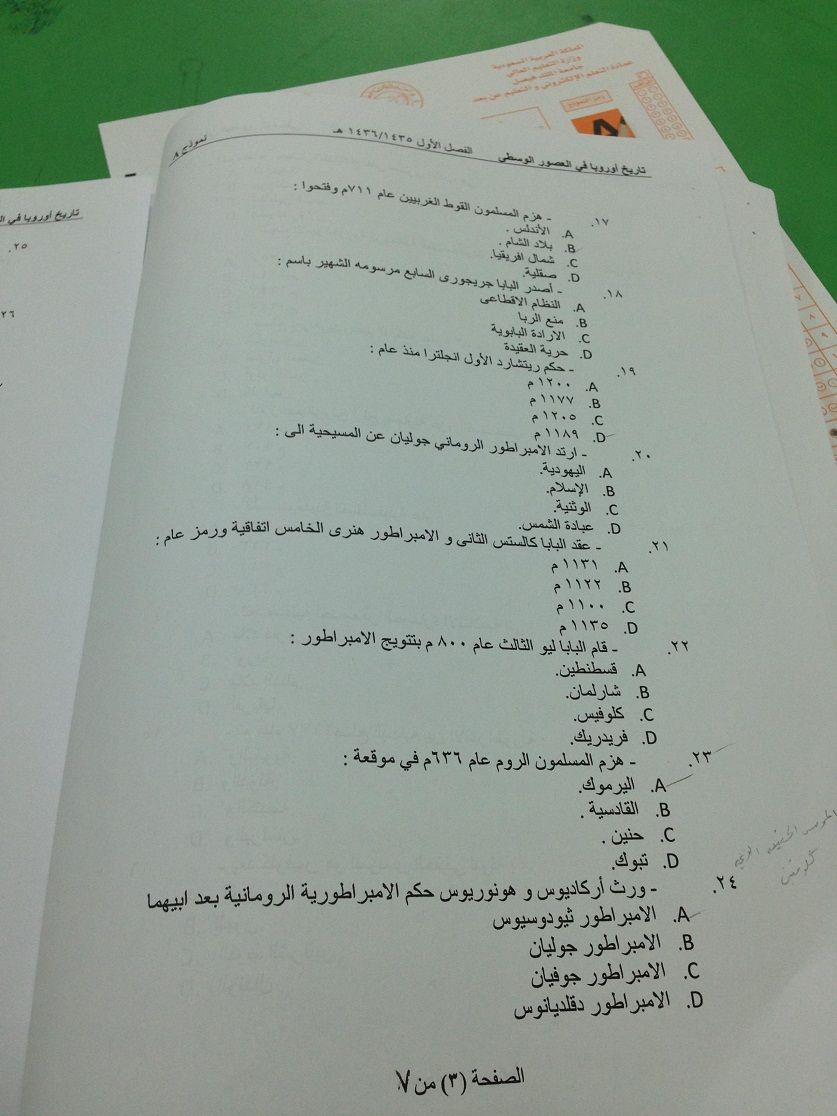 المملكة العربية السعودية
وزارة التعليم العالي
جامعة الملك فيصل
عمادة التعلم الإلكتروني و التعليم عن بعد
رمز النموذج
A
تاريخ أوروبا في العصور الوسطي الفصل الأول ١٤٣٦/١٤٣٥ هـ نموذج A
١٧. - هزم المسلمون القوط الغربيين عام ٧١١م وفتحوا :
A. الأندلس .
B. بلاد الشام .
C. شمال افريقيا.
D. صقلية.
١٨. - أصدر البابا جريجورى السابع مرسومه الشهير باسم :
A. النظام الاقطاعى
B. منع الربا
C. الارادة البابوية
D. حرية العقيدة
١٩. - حكم ريتشارد الأول انجلترا منذ عام :
A. ١٢٠٠ م
B. ١١٧٧ م
C. ١٢٠٥ م
D. ١١٨٩ م
٢٠. - ارتد الامبراطور الروماني جوليان عن المسيحية الى :
A. اليهودية.
B. الإسلام.
C. الوثنية.
D. عبادة الشمس.
٢١. - عقد البابا كالستس الثانى و الامبراطور هنرى الخامس اتفاقية ورمز عام :
A. ١١٣١ م
B. ١١٢٢ م
C. ١١٠٠ م
D. ١١٣٥ م
٢٢. - قام البابا ليو الثالث عام ٨٠٠ م بتتويج الامبراطور :
A. قسطنطين.
B. شارلمان.
C. كلوفيس.
D. فريدريك.
٢٣. - هزم المسلمون الروم عام ٦٣٦م في موقعة :
A. اليرموك.
B. القادسية .
C. حنين .
D. تبوك.
٢٤. - ورث أركاديوس و هونوريوس حكم الامبراطورية الرومانية بعد ابيهما
A. الامبراطور ثيودوسيوس
B. الامبراطور جوليان
C. الامبراطور جوفيان
D. الامبراطور دقلديانوس
الصفحة (٣) من ٧
تاريخ أوروبا في
٢٥.
٢٦